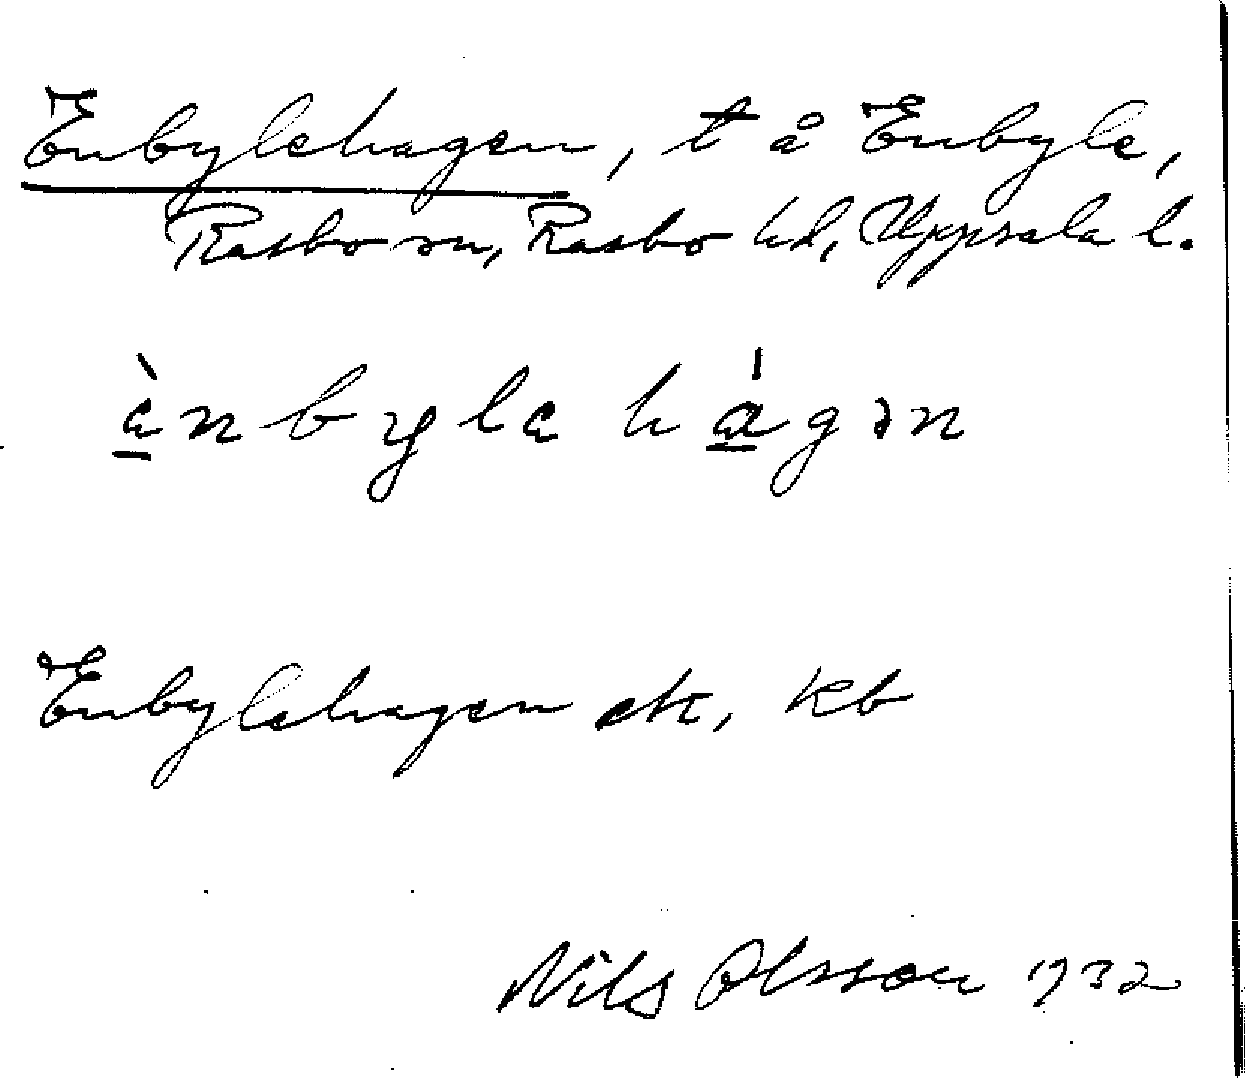 Enbylehagen, t å Enbyle,
Rasbo sn, Rasbo hd, Uppsala l.
ènbyle hágən
Enbylehagen ek, kb
Nils Olsson 1932